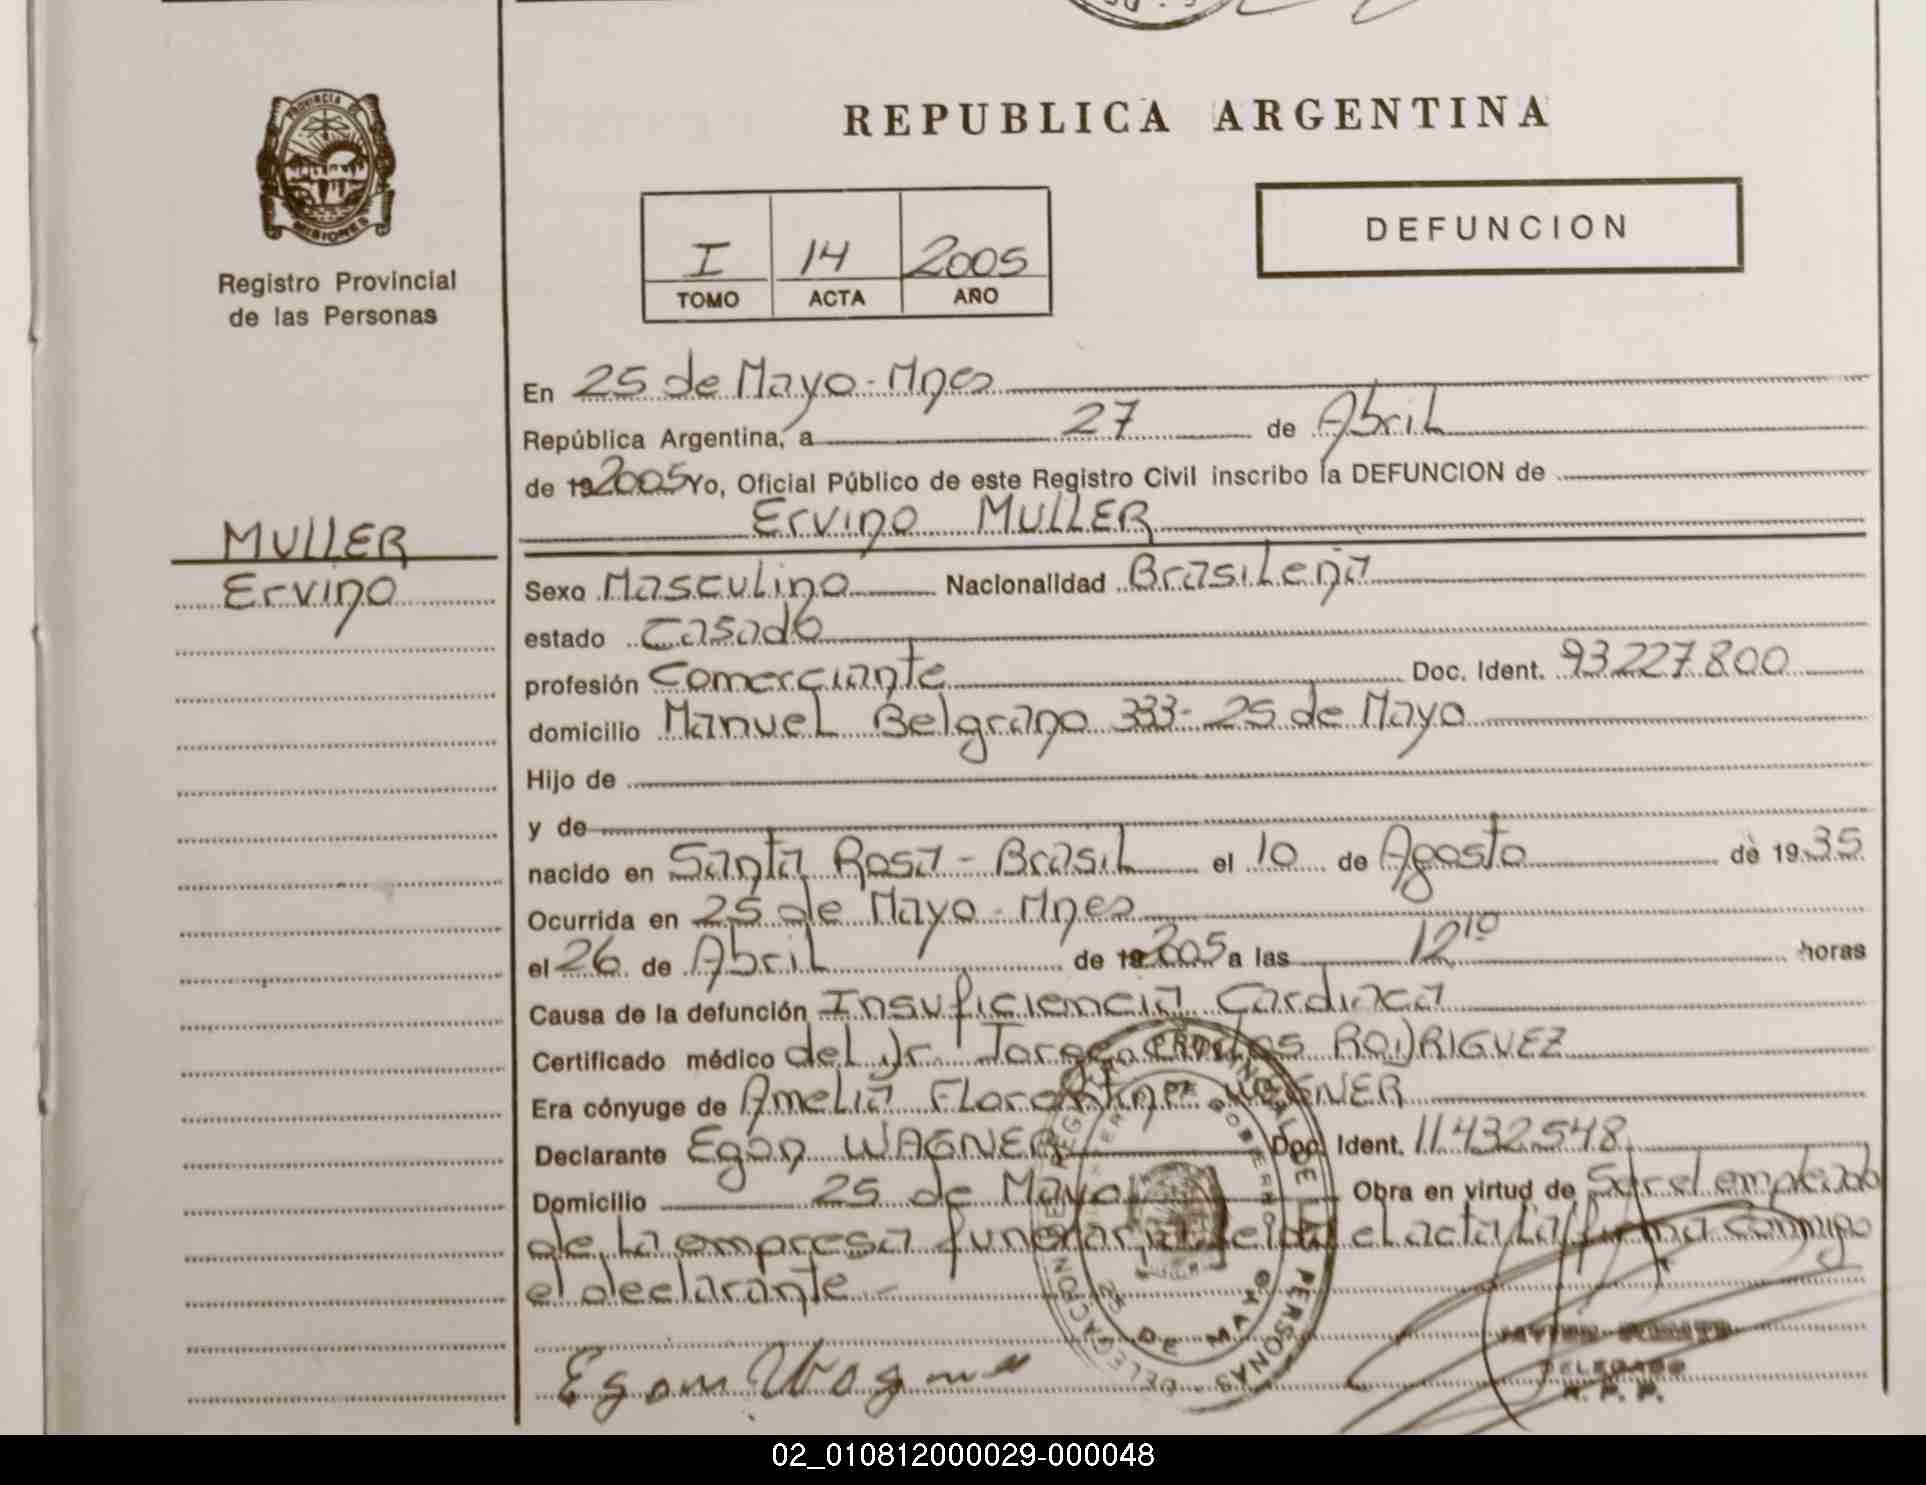 REPUBLICA ARGENTINA
PROVINCIA DE
MISIONES
Registro Provincial
de las Personas
I 14 2005
TOMO ACTA AÑO
DEFUNCION
En 25 de Mayo - Mnes
República Argentina, a 27 de Abril
de 192005 Yo, Oficial Público de este Registro Civil inscribo la DEFUNCION de
Ervino MULLER
MULLER
Ervino
Sexo Masculino Nacionalidad Brasileña
estado Casado
profesión Comerciante Doc. Ident. 93.227.800
domicilio Manuel Belgrano 333 - 25 de Mayo
Hijo de
y de
nacido en Santa Rosa - Brasil el 10 de Agosto de 1935
Ocurrida en 25 de Mayo - Mnes
el 26 de Abril de 192005 a las 12 10 horas
Causa de la defunción Insuficiencia Cardiaca
Certificado médico del Dr. Jorge Carlos RODRIGUEZ
Era cónyuge de Amelia Florentina WAGNER
Declarante Egon WAGNER Doc. Ident. 11.432.548
Domicilio 25 de Mayo Obra en virtud de Ser el empleado
de la empresa funeraria Leida el acta la firma conmigo
el declarante -
REGISTRO PROVINCIAL DE LAS PERSONAS - DELEGACION
25 DE MAYO
Egon Wagner
DELEGADO
R. P. P.
02_010812000029-000048